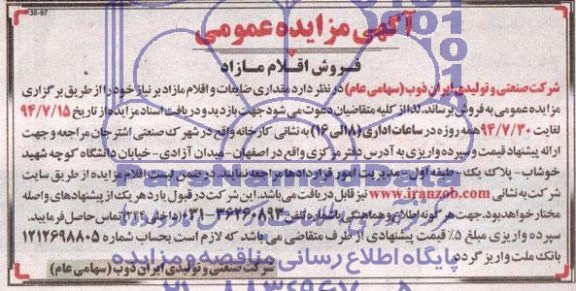 30-97
آگهی مزایده عمومی
فروش اقلام مازاد
شرکت صنعتی و تولیدی ایران ذوب (سهامی عام) در نظر دارد مقداری ضایعات و اقلام مازاد بر نیاز خود را از طریق برگزاری
مزایده عمومی به فروش برساند. لذا از کلیه متقاضیان دعوت می شود جهت بازدید و دریافت اسناد مزایده از تاریخ ۹۴/۷/۱۵
لغایت ۹۴/۷/۳۰ همه روزه در ساعات اداری (۸ الی ۱۶) به نشانی کارخانه واقع در شهرک صنعتی اشترجان مراجعه و جهت
ارائه پیشنهاد قیمت و سپرده واریزی به آدرس دفتر مرکزی واقع در اصفهان - میدان آزادی - خیابان دانشگاه کوچه شهید
خوشاب - پلاک یک - طبقه اول - مدیریت امور قراردادها مراجعه نمایند. در ضمن لیست اقلام مزایده از طریق سایت
شرکت به نشانی www.iranzob.com نیز قابل دریافت می باشد. این شرکت در قبول یا رد هر یک از پیشنهادهای واصله
مختار خواهد بود. جهت هر گونه اطلاع و هماهنگی با شماره تلفن ۳۶۲۶۰۸۹۳-۰۳۱ (داخلی ۲۳۶) تماس حاصل فرمایید.
سپرده واریزی مبلغ ۵٪ قیمت پیشنهادی از طرف متقاضی می باشد که لازم است بحساب شماره ۱۲۱۲۶۹۸۸۰۵
بانک ملت واریز گردد.
شرکت صنعتی و تولیدی ایران ذوب (سهامی عام)
پایگاه اطلاع رسانی مناقصه و مزایده